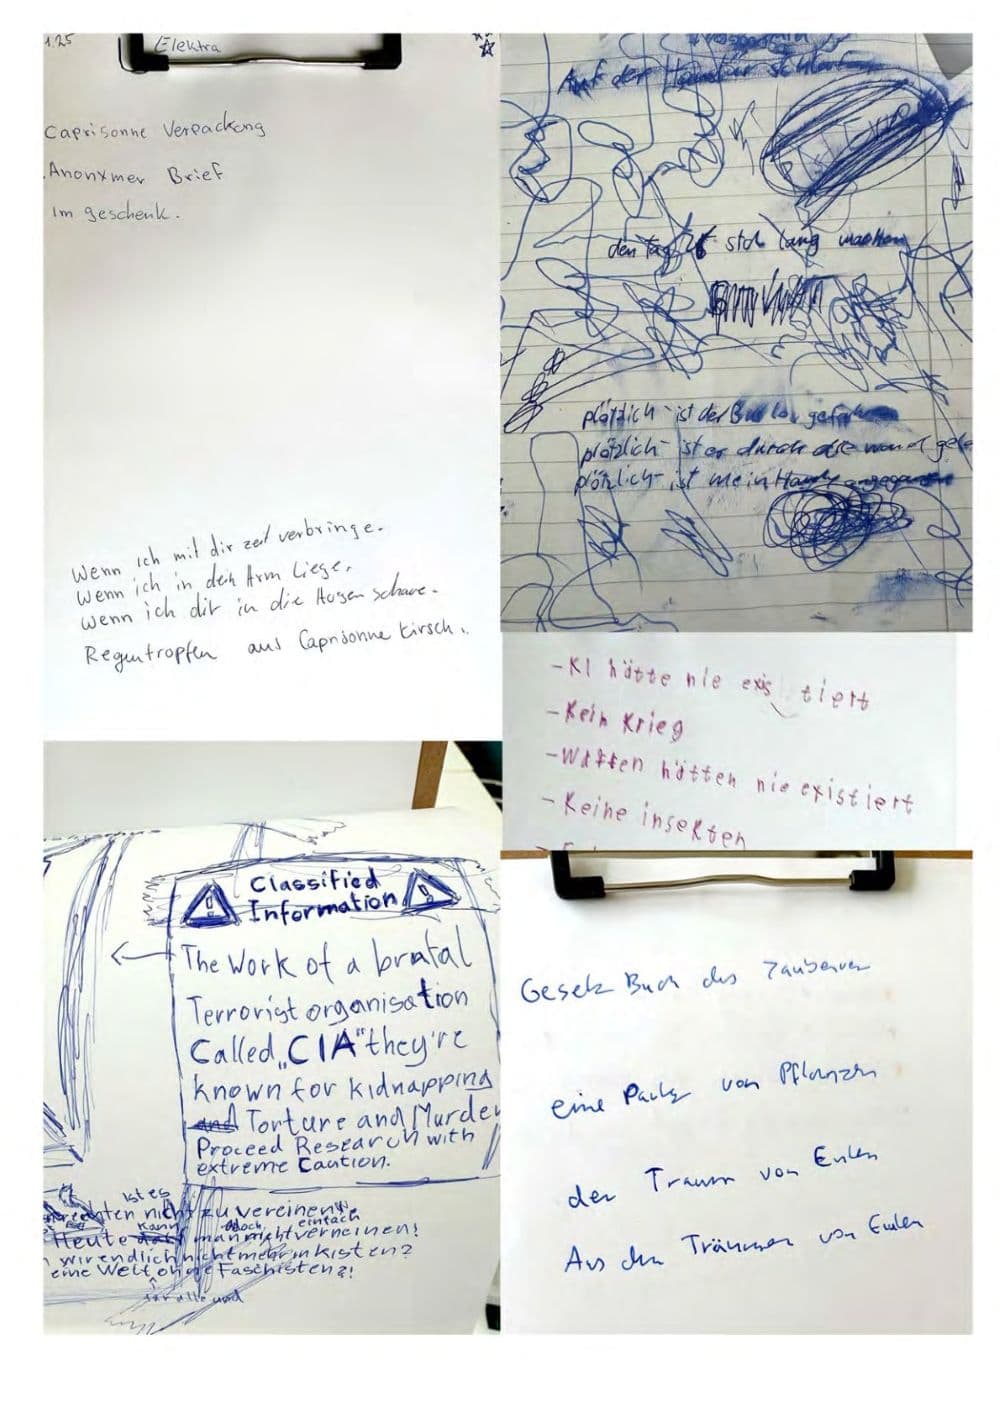 1.25
Elektra
Caprisonne Verpackong
Anonxmer Brief
im geschenk.
Wenn ich mit dir zeit verbringe.
Wenn ich in dein Arm Liege.
Wenn ich dir in die Augen schaue.
Regentropfen aus Caprisonne Kirsch.
Auf der
den tag sich lang machen
plötzlich ist der Bus los gefahren
plötzlich ist er durch die wand
plötzlich ist mein Handy angegangen
-KI hätte nie existiert
-Kein Krieg
-Waffen hätten nie existiert
-Keine insekten
Classified
Information
The Work of a brutal
Terrorist organisation
Called „CIA" they're
known for kidnapping
and Torture and Murder
Proceed Research with
extreme Caution.
ist es
nicht zu vereinen
kann doch einfach
Heute man nicht verneinen!
wir endlich nicht mehr in kisten?
eine Welt ohne Faschisten?!
für alle und
Gesetz Buch des Zauberer
eine Party von Pflanzen
der Traum von Eulen
Aus den Träumen von Eulen